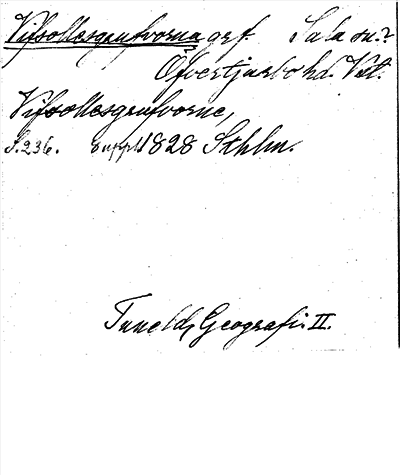 Vifsollesgrufvorna grf. Sala sn.?
Öfvertjurbo hd. Vstl.
Vifsollesgrufvorne,
S. 236. uppl. 1828 Sthlm.
Tunelds Geografi. II.